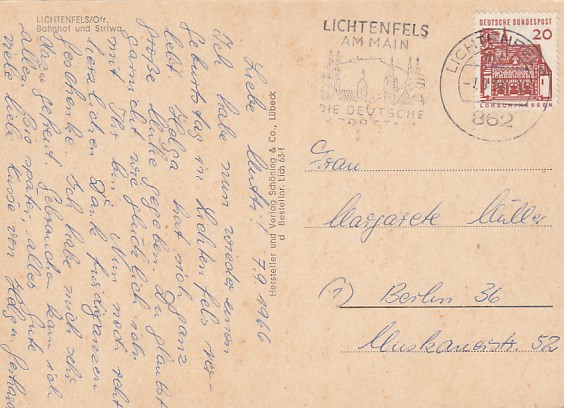 LICHTENFELS/Ofr.
Bahnhof und Striwa
Liebe Mutti! 7.9.1966
Ich habe nun wieder einen
Geburtstag in Lichtenfels ver-
lebt. Helga hat sich ganz
große Mühe gegeben. Du glaubst
gar nicht wie glücklich ich
mit Ihr bin. Nun noch recht
herzlichen Dank für die ganzen
Geschenke. Ich habe mich sehr
gefreut. Gebrauchen kann ich
alles. Bis später, alles Gute
viele liebe Küsse von Helga Gerhard
Hersteller und Verlag Schöning & Co., Lübeck
d Bestellnr. Lich 65 f
LICHTENFELS
AM MAIN
DIE DEUTSCHE
KORBSTADT
LICHTENFELS
862
DEUTSCHE BUNDESPOST
20
LORSCH/HESSEN
Frau
Margarete Müller
(1) Berlin 36
Muskauerstr. 52